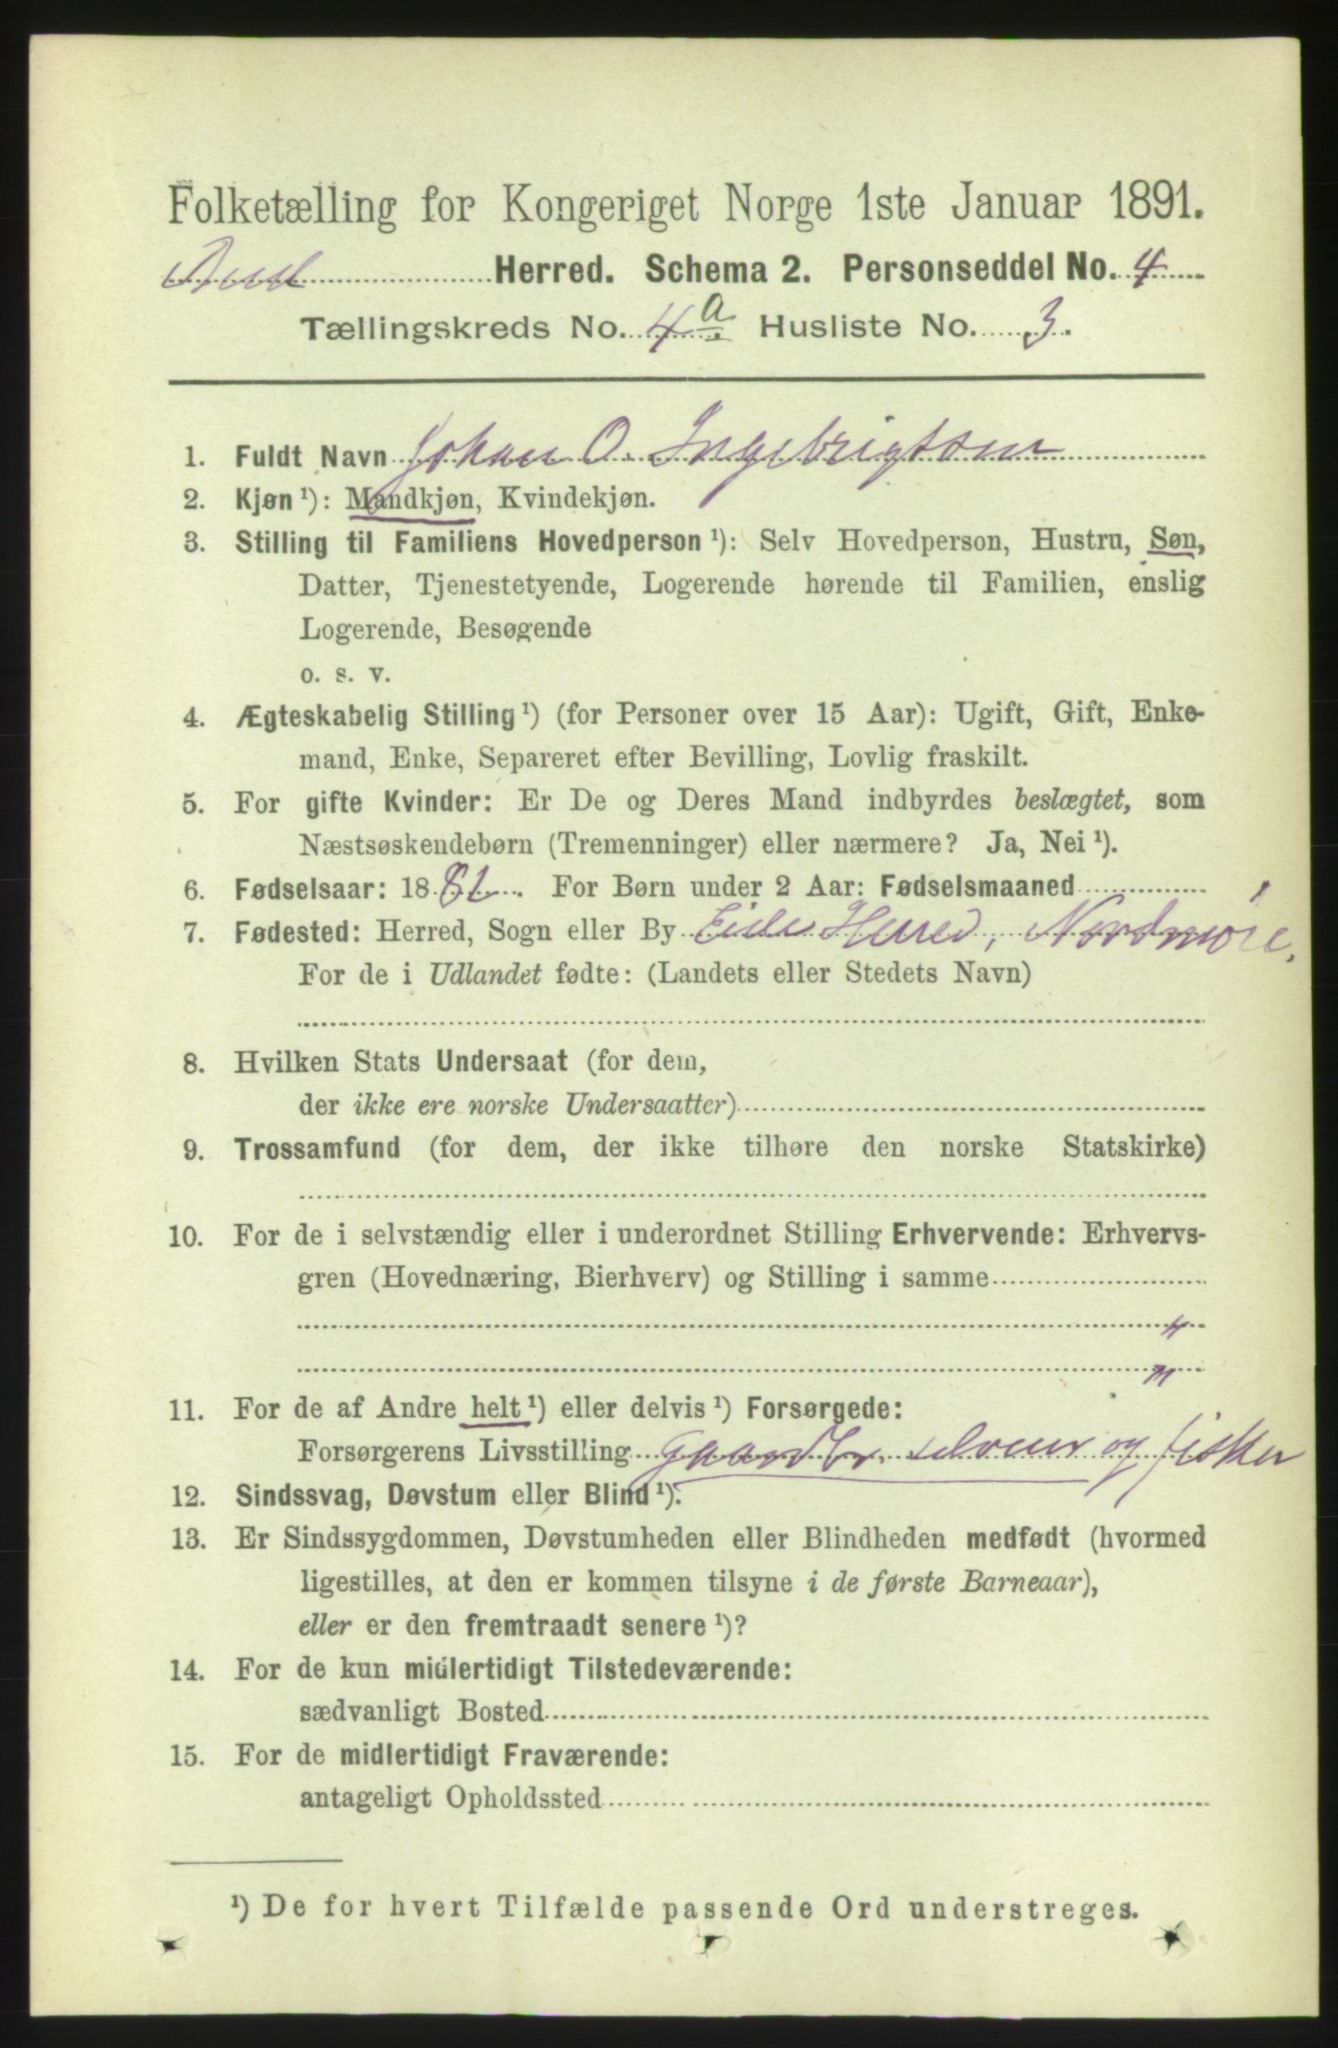 Folketælling for Kongeriget Norge 1ste Januar 1891.
Bud Herred. Schema 2. Personseddel No. 4
Tællingskreds No. 4 a Husliste No. 3.
1. Fuldt Navn Johan O. Ingebrigtsen
2. Kjøn ¹): Mandkjøn, Kvindekjøn.
3. Stilling til Familiens Hovedperson ¹): Selv Hovedperson, Hustru, Søn,
Datter, Tjenestetyende, Logerende hørende til Familien, enslig
Logerende, Besøgende
o. s. v.
4. Ægteskabelig Stilling ¹) (for Personer over 15 Aar): Ugift, Gift, Enke-
mand, Enke, Separeret efter Bevilling, Lovlig fraskilt.
5. For gifte Kvinder: Er De og Deres Mand indbyrdes beslægtet, som
Næstsøskendebørn (Tremenninger) eller nærmere? Ja, Nei ¹).
6. Fødselsaar: 18 82. For Børn under 2 Aar: Fødselsmaaned
7. Fødested: Herred, Sogn eller By Eide Herred, Nordmøre.
For de i Udlandet fødte: (Landets eller Stedets Navn)
8. Hvilken Stats Undersaat (for dem,
der ikke ere norske Undersaatter)
9. Trossamfund (for dem, der ikke tilhøre den norske Statskirke)
10. For de i selvstændig eller i underordnet Stilling Erhvervende: Erhvervs-
gren (Hovednæring, Bierhverv) og Stilling i samme
11. For de af Andre helt ¹) eller delvis ¹) Forsørgede:
Forsørgerens Livsstilling Gaardbr. selveier og fisker
12. Sindssvag, Døvstum eller Blind ¹).
13. Er Sindssygdommen, Døvstumheden eller Blindheden medfødt (hvormed
ligestilles, at den er kommen tilsyne i de første Barneaar),
eller er den fremtraadt senere ¹)?
14. For de kun midlertidigt Tilstedeværende:
sædvanligt Bosted
15. For de midlertidigt Fraværende:
antageligt Opholdssted
¹) De for hvert Tilfælde passende Ord understreges.